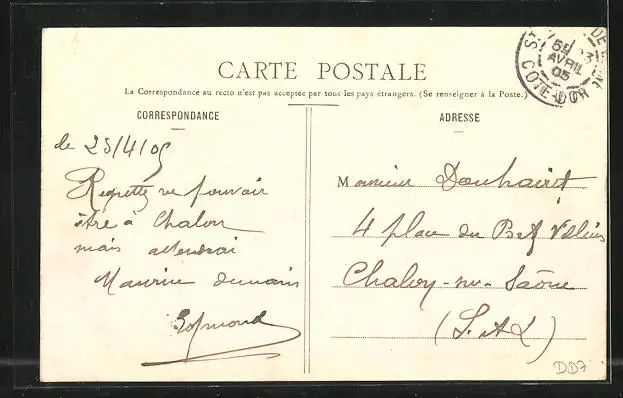 CARTE POSTALE
La Correspondance au recto n'est pas acceptée par tous les pays étrangers. (Se renseigner à la Poste.)
CORRESPONDANCE
le 23/4/05
Regrette ne pouvoir
être à Chalon
mais attendrai
Maurice demain
Edmond
ADRESSE
Monsieur
4 place du
Chalon-sur-Saône
(S. & L)
AVRIL
05
COTE-D'OR
DD7